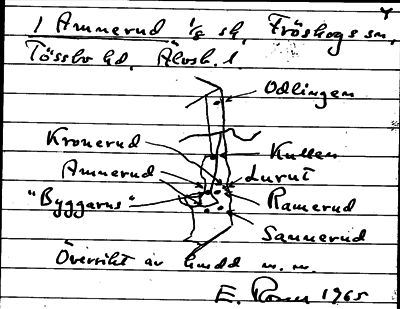 1 Amnerud 1/8 sk, Fröskogs sn,
Tössbo hd, Älvsb. l.
Odlingen
Kronerud
Kullen
Amnerud
Lurut
"Byggarns"
Ramerud
Sannerud
Översikt av m. m.
E. 1965